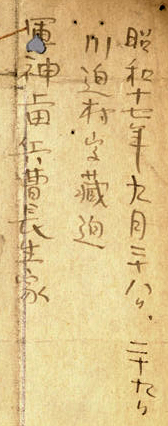 昭和十七年九月二十八日、二十九日
川迫村字蔵迫
軍神
長生家